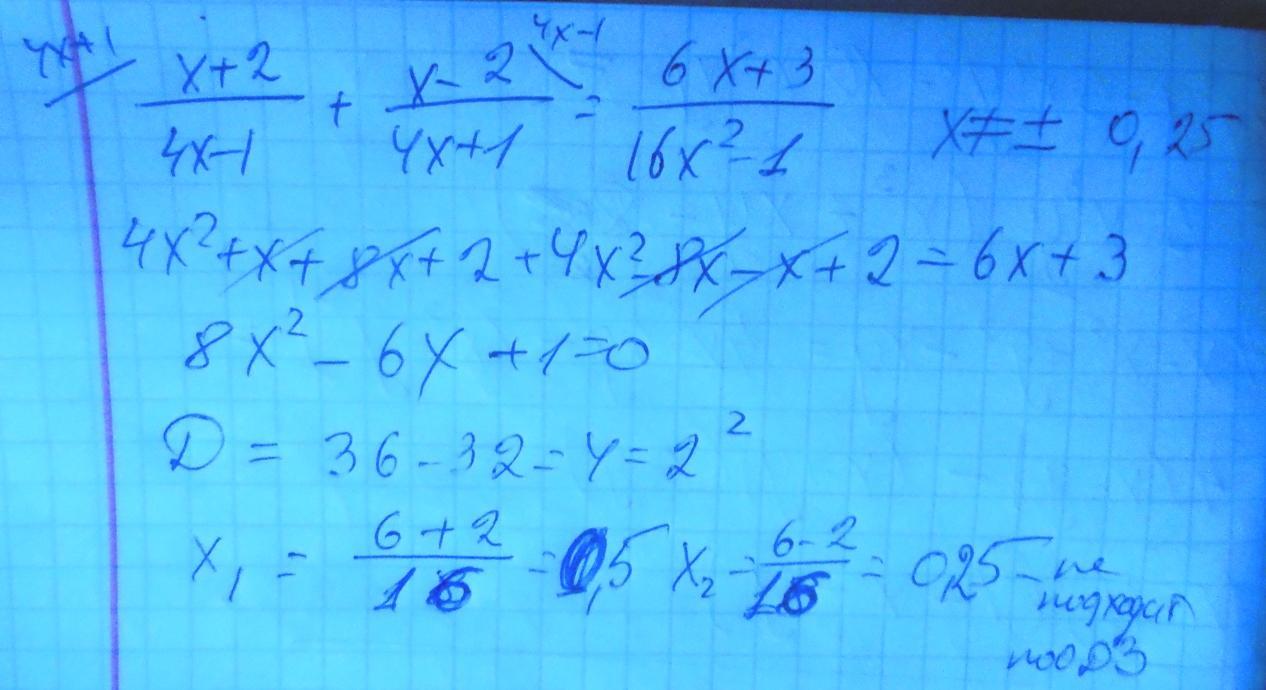 4x+1/ (x+2)/(4x-1) + (x-2)/(4x+1) \4x-1 = (6x+3)/(16x²-1) x≠± 0,25
4x²+x+8x+2+4x²-8x-x+2=6x+3
8x²-6x+1=0
D=36-32=4=2²
x₁=(6+2)/16=0,5 x₂=(6-2)/16=0,25-не
подходит
по ОДЗ